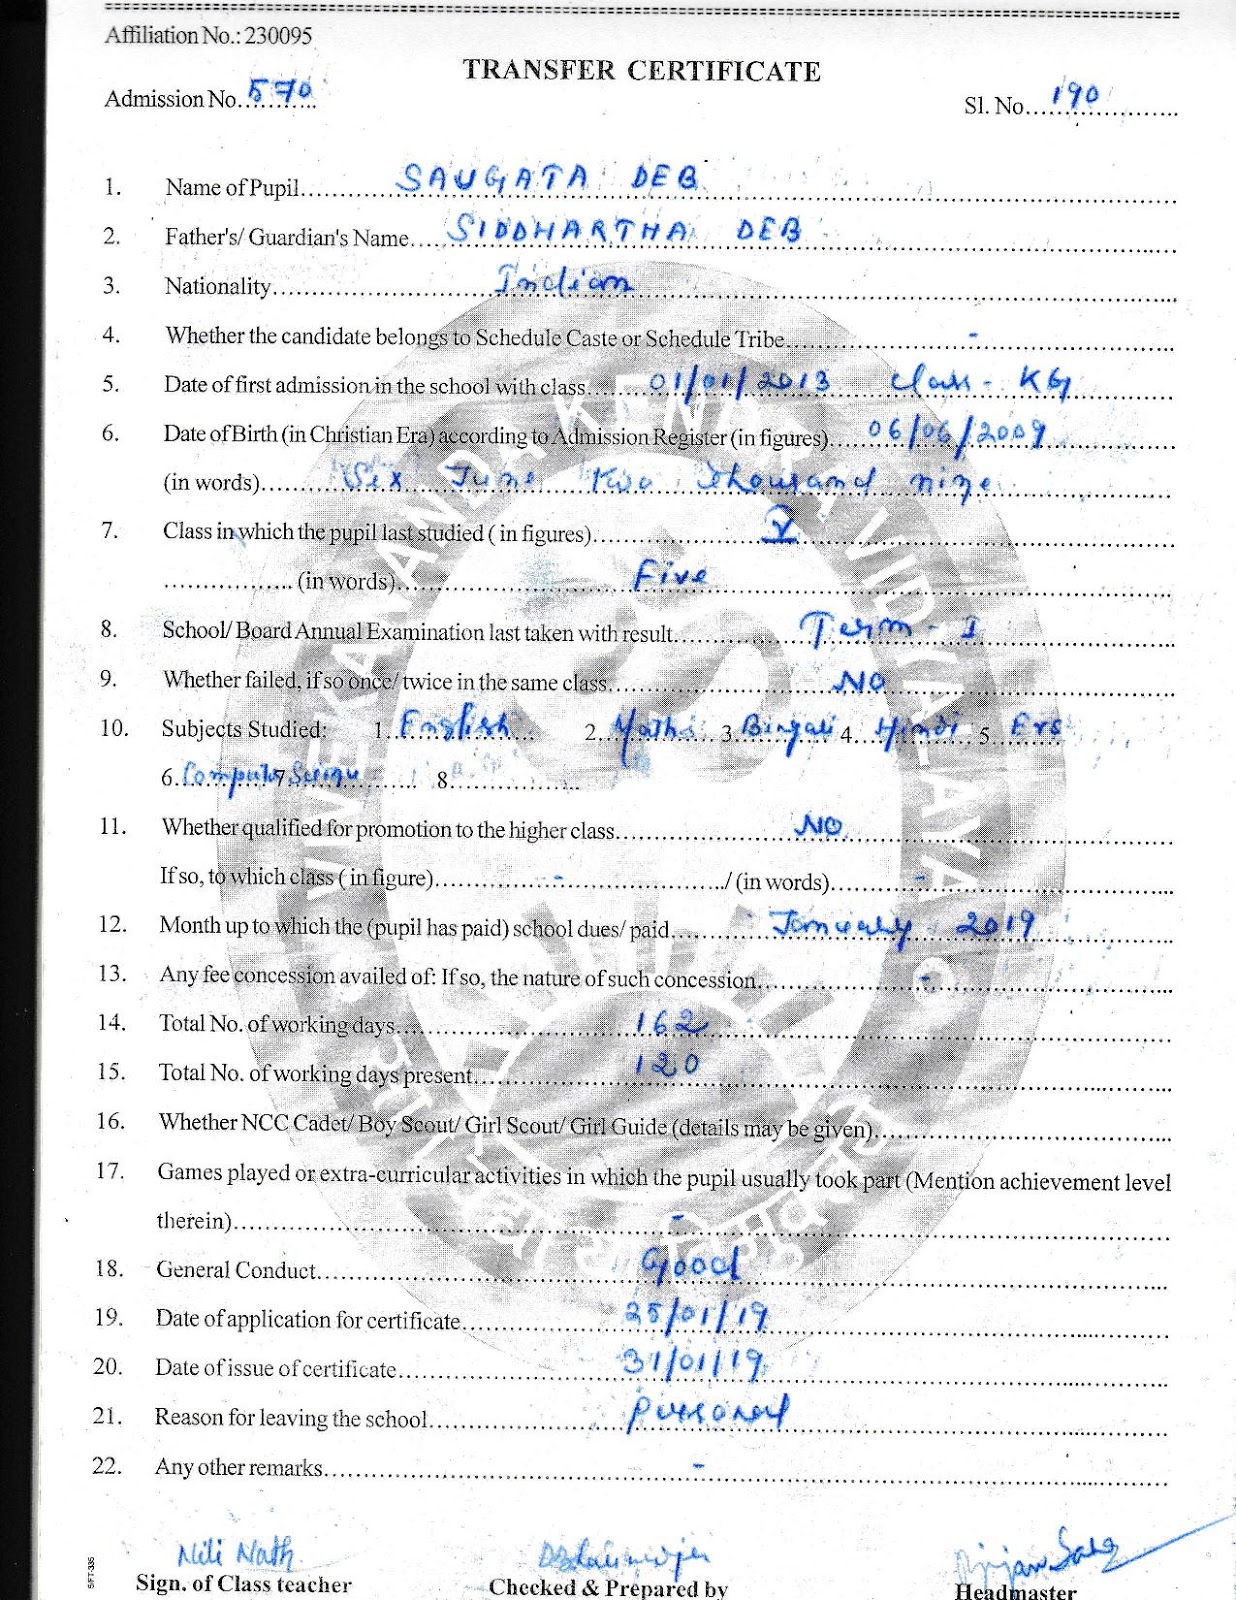 Affiliation No.: 230095
TRANSFER CERTIFICATE
Admission No. 570
Sl. No. 190
1. Name of Pupil SAUGATA DEB
2. Father's/ Guardian's Name SIDDHARTHA DEB
3. Nationality Indian
4. Whether the candidate belongs to Schedule Caste or Schedule Tribe -
5. Date of first admission in the school with class 01/01/2013 Class - KG
6. Date of Birth (in Christian Era) according to Admission Register (in figures) 06/06/2009
(in words) Six June two thousand nine
7. Class in which the pupil last studied ( in figures) V
(in words) Five
8. School/ Board Annual Examination last taken with result Term - I
9. Whether failed, if so once/ twice in the same class NO
10. Subjects Studied: 1. English 2. Maths 3. Bengali 4. Hindi 5. Evs
6. Computer 7. 8.
11. Whether qualified for promotion to the higher class NO
If so, to which class ( in figure) - / (in words) -
12. Month up to which the (pupil has paid) school dues/ paid January 2019
13. Any fee concession availed of: If so, the nature of such concession -
14. Total No. of working days 162
15. Total No. of working days present 120
16. Whether NCC Cadet/ Boy Scout/ Girl Scout/ Girl Guide (details may be given)
17. Games played or extra-curricular activities in which the pupil usually took part (Mention achievement level
therein) -
18. General Conduct Good
19. Date of application for certificate 25/01/19
20. Date of issue of certificate 31/01/19
21. Reason for leaving the school Personal
22. Any other remarks -
Nili Nath
Sign. of Class teacher
Checked & Prepared by
Headmaster
VIVEKANANDA KENDRA VIDYALAYA